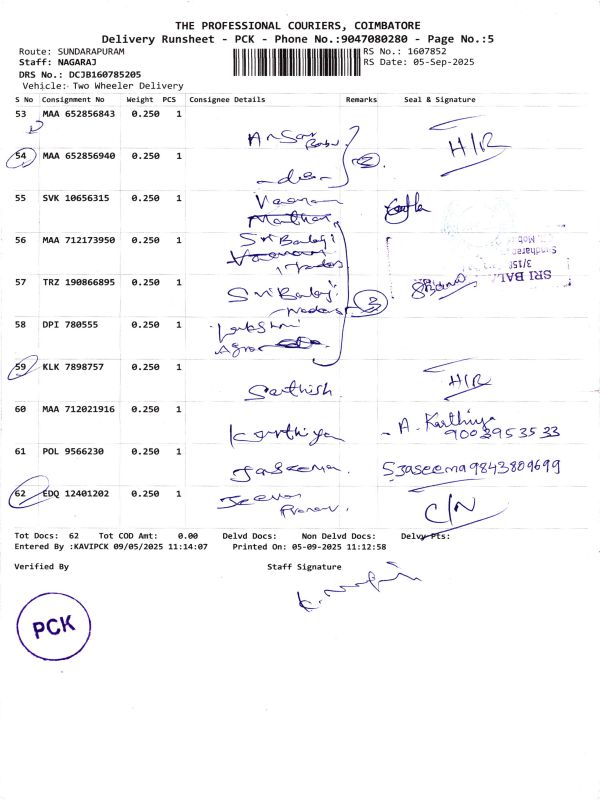 THE PROFESSIONAL COURIERS, COIMBATORE
Delivery Runsheet - PCK - Phone No.:9047080280 - Page No.:5
Route: SUNDARAPURAM RS No.: 1607852
Staff: NAGARAJ RS Date: 05-Sep-2025
DRS No.: DCJB160785205
Vehicle: Two Wheeler Delivery
S No Consignment No Weight PCS Consignee Details Remarks Seal & Signature
53 MAA 652856843 0.250 1
Babu
H/R
54 MAA 652856940 0.250 1 2
-do-
55 SVK 10656315 0.250 1
56 MAA 712173950 0.250 1 Sri Balaji
Traders
57 TRZ 190866895 0.250 1 3/15
SRI BAL
Sri Balaji
Traders 3
58 DPI 780555 0.250 1 Lakshmi
Agro
59 KLK 7898757 0.250 1
Sathish H/R
60 MAA 712021916 0.250 1
Karthiga - A. Karthiga
9003953533
61 POL 9566230 0.250 1
Jaseema. S Jaseema 9843809699
62 EDQ 12401202 0.250 1 Jeeva
C/N
Tot Docs: 62 Tot COD Amt: 0.00 Delvd Docs: Non Delvd Docs: Delvy Pts:
Entered By :KAVIPCK 09/05/2025 11:14:07 Printed On: 05-09-2025 11:12:58
Verified By Staff Signature
PCK